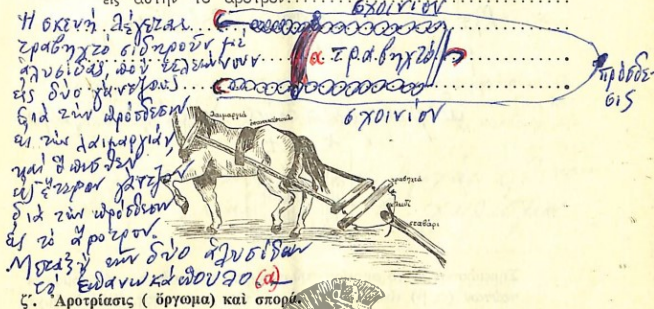 εἰς αὐτὴν τὸ ἄροτρον
σχοινίον
Ἡ σκευὴ λέγεται
τραβηχτὸ σιδηροῦν μὲ
ἁλυσίδας ποὺ τελειώνουν
εἰς δύο γάντζους
διὰ τὴν πρόσδεσιν
εἰς τὴν λαιμαργιάν,
καὶ ὄπισθεν
εἰς ἕτερον γάντζον
διὰ τὴν πρόσδεσιν
εἰς τὸ ἄροτρον.
Μεταξὺ τῶν δύο ἁλυσίδων
τὸ ἐπανωκάπουλο (α)
α τραβηχτό
πρόσδε-
σις
σχοινίον
λαιμαργιά
τραβηχτά
σταβάρι
ζ΄. Ἀροτρίασις ( ὄργωμα) καὶ σπορά.